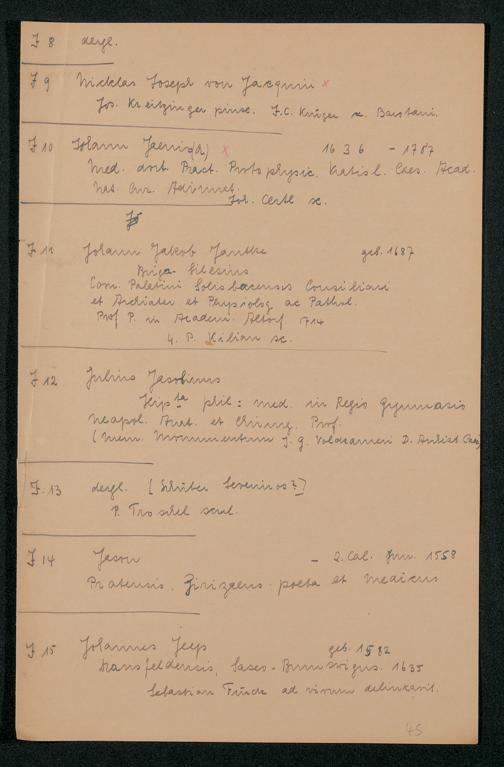 J 8 dergl.
J 9 Nicklas Joseph von Jacquin x
Jos. Kreitzinger pinx. F.C. Krüger sc.
J 10 Johann Jaenis(ch) x 1636 - 1707
Med. doct. Pract. Protophysic. Ratisl. Caes. Acad.
Nat. Cur. Adiunct.
Joh. Certl sc.
J 11 Johann Jakob Jantke geb. 1687
Briga-Silesius
Com. Palatini Solisbacensis Consiliari
et Archiater et Physiolog ac Pathol.
Prof P. in Academ. Altorf 714
G. P. Kilian sc.
J 12 Julius Jasolinus
phil: med. in Regio Gymnasio
Neapol. Anat. et Chirurg. Prof.
(Mem. Monumentum J. G. Volcameri D. Archiat Caes
J. 13 dergl. [Schüler Severinos?]
P. Troschel scul.
J 14 Jason - 2. Cal. Jun. 1558
Pratensis. Zirizaeus poeta et Medicus
J 15 Johannes Jeep geb. 1582
Dransfeldensis, Saxo-Brunsvigus. 1635
Sebastian Furck ad vivum delineavit.
45